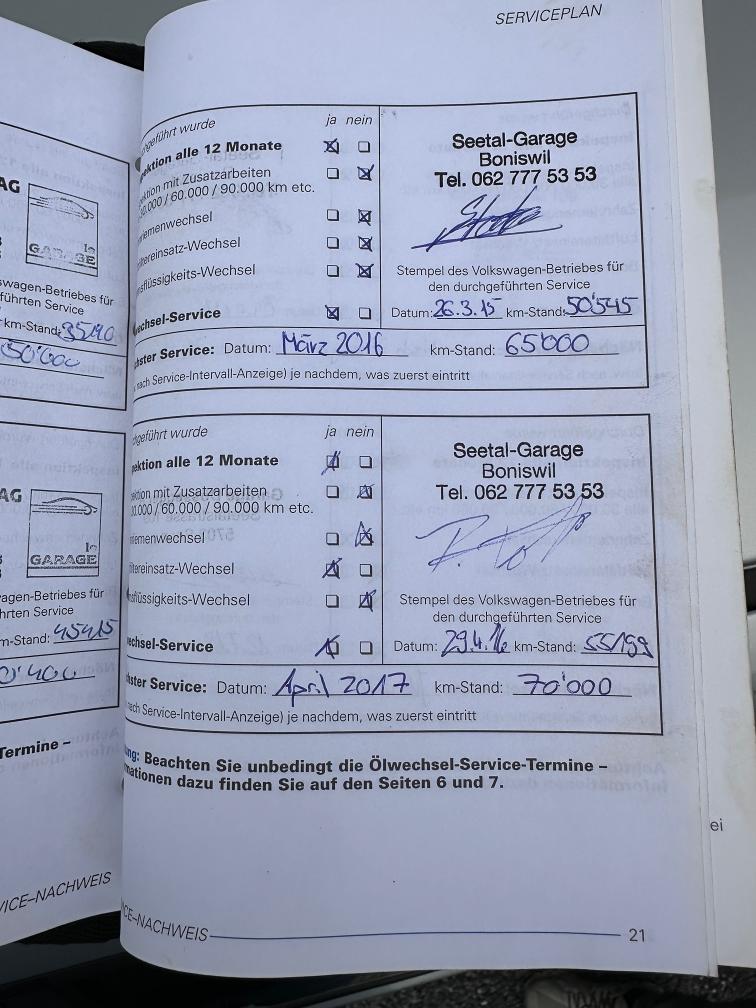 SERVICEPLAN
AG
GARAGE
swagen-Betriebes für
führten Service
km-Stand: 35190
50'000
AG
GARAGE
agen-Betriebes für
hrten Service
m-Stand: 45415
0'400
Termine –
VICE–NACHWEIS
chgeführt wurde ja nein
ektion alle 12 Monate
ektion mit Zusatzarbeiten
0.000 / 60.000 / 90.000 km etc.
iemenwechsel
ltereinsatz-Wechsel
nsflüssigkeits-Wechsel
wechsel-Service
Seetal-Garage
Boniswil
Tel. 062 777 53 53
Stempel des Volkswagen-Betriebes für
den durchgeführten Service
Datum: 26.3.15 km-Stand: 50'545
chster Service: Datum: März 2016 km-Stand: 65'000
nach Service-Intervall-Anzeige) je nachdem, was zuerst eintritt
chgeführt wurde ja nein
ektion alle 12 Monate
ektion mit Zusatzarbeiten
0.000 / 60.000 / 90.000 km etc.
iemenwechsel
ltereinsatz-Wechsel
nsflüssigkeits-Wechsel
echsel-Service
Seetal-Garage
Boniswil
Tel. 062 777 53 53
Stempel des Volkswagen-Betriebes für
den durchgeführten Service
Datum: 29.4.16 km-Stand: 55199
hster Service: Datum: April 2017 km-Stand: 70'000
nach Service-Intervall-Anzeige) je nachdem, was zuerst eintritt
ung: Beachten Sie unbedingt die Ölwechsel-Service-Termine –
mationen dazu finden Sie auf den Seiten 6 und 7.
ICE–NACHWEIS
21
ei